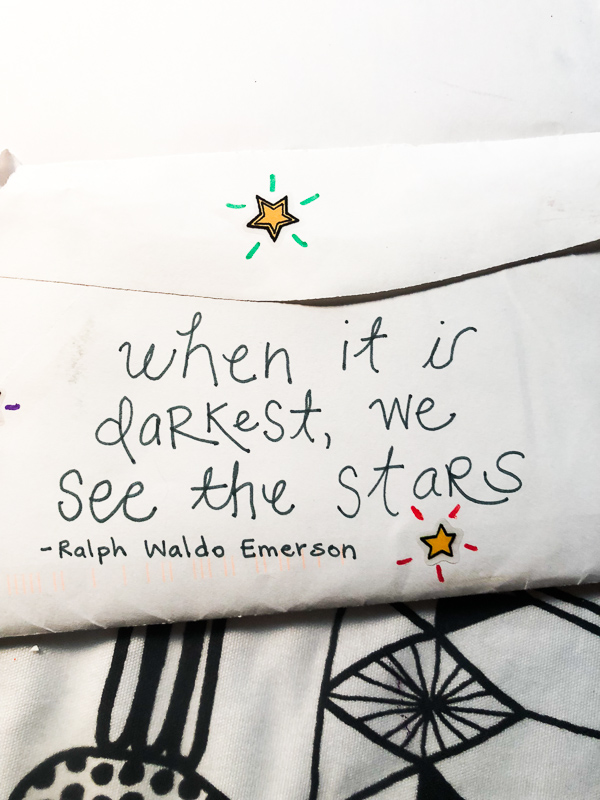 when it is
darkest, we
see the stars
-Ralph Waldo Emerson